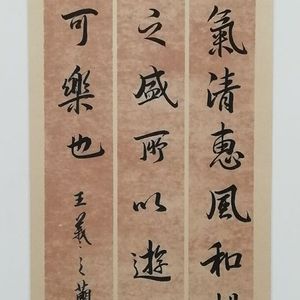 氣清惠風和
之盛所以遊
可樂也 王羲之蘭